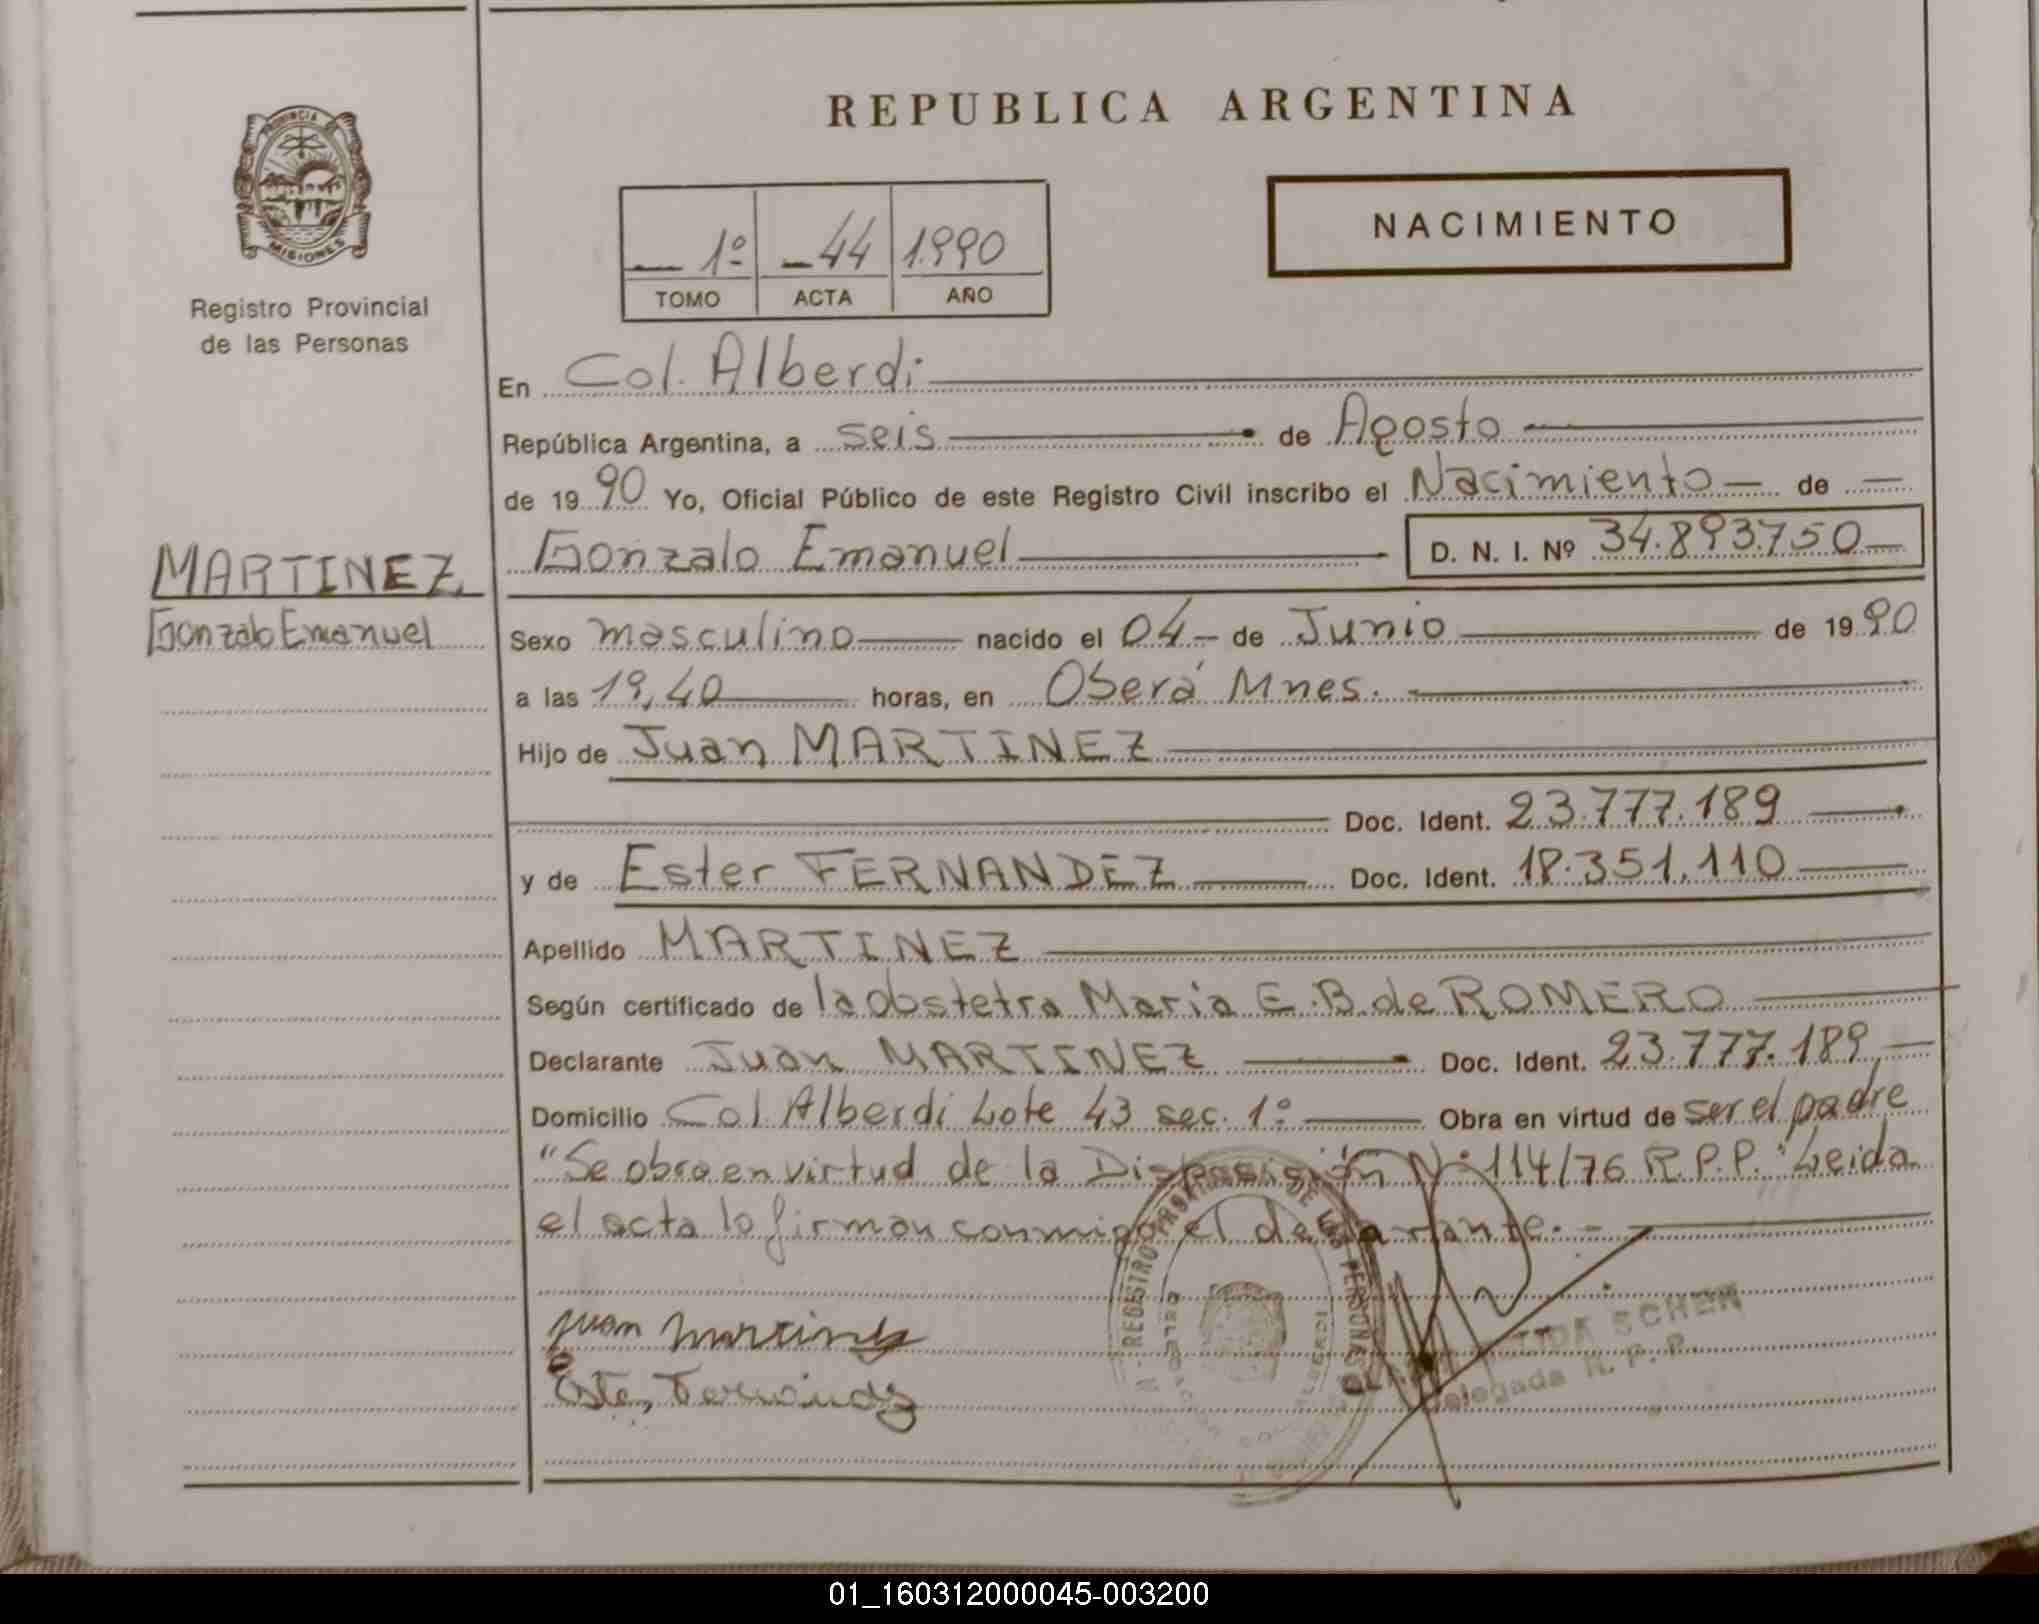 REPUBLICA ARGENTINA
PROVINCIA DE
MISIONES
Registro Provincial
de las Personas
1º -44 1.990
TOMO ACTA AÑO
NACIMIENTO
En Col. Alberdi
República Argentina, a seis de Agosto
de 1990 Yo, Oficial Público de este Registro Civil inscribo el Nacimiento — de —
Gonzalo Emanuel D. N. I. Nº 34.893.750
MARTINEZ
Gonzalo Emanuel
Sexo masculino nacido el 04 de Junio de 1990
a las 19,40 horas, en Oberá Mnes.
Hijo de Juan MARTINEZ
Doc. Ident. 23.777.189
y de Ester FERNANDEZ Doc. Ident. 18.351.110
Apellido MARTINEZ
Según certificado de la obstetra Maria E. B. de ROMERO
Declarante Juan MARTINEZ Doc. Ident. 23.777.189
Domicilio Col. Alberdi Lote 43 sec. 1º Obra en virtud de ser el padre
"Se obra en virtud de la Disposición Nº 114/76 R.P.P." Leida
el acta lo firman conmigo el declarante. -
REGISTRO PROVINCIAL DE LAS PERSONAS
DELEGACION COL. ALBERDI
juan martinez
Ester Fernandez
SCHEN
Delegada R. P. P.
01_160312000045-003200